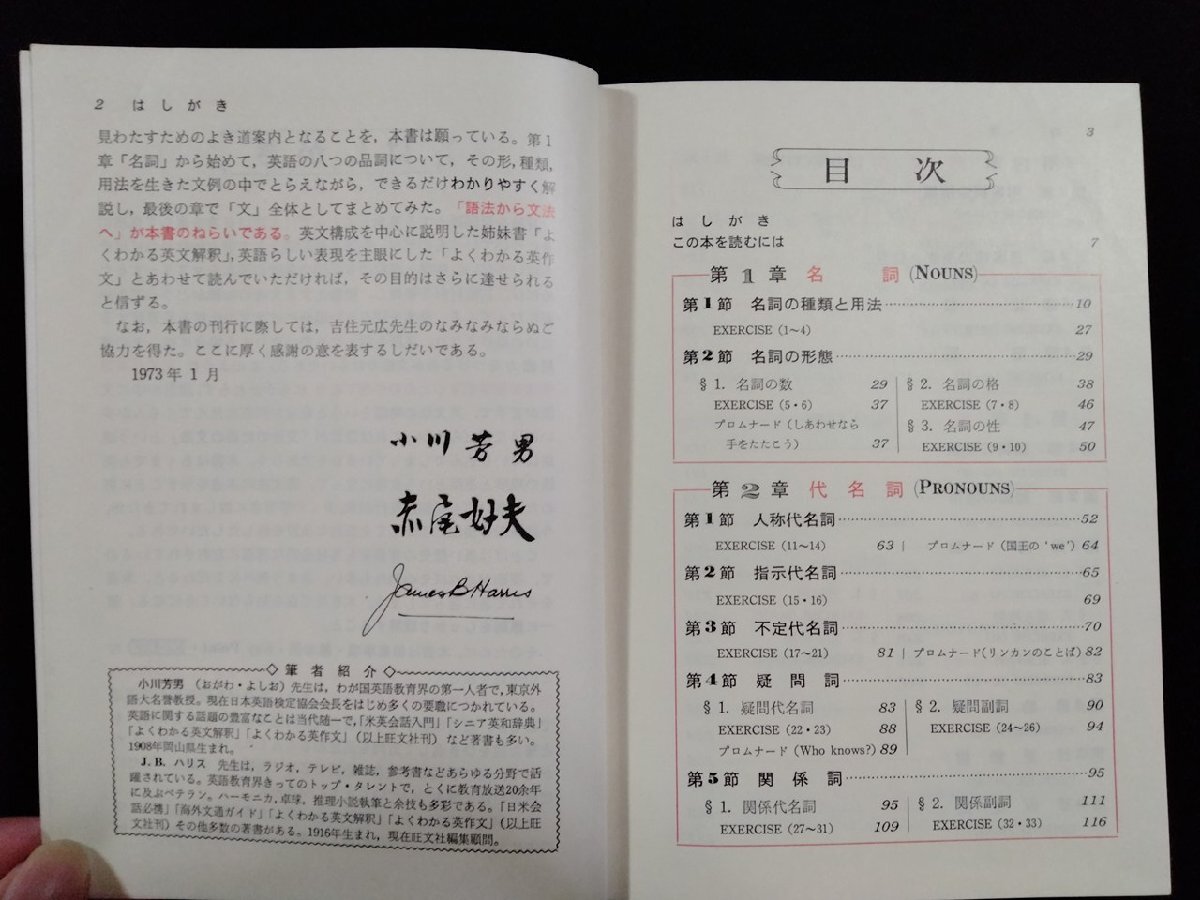 2 はしがき
見わたすためのよき道案内となることを，本書は願っている。第1
章「名詞」から始めて，英語の八つの品詞について，その形，種類，
用法を生きた文例の中でとらえながら，できるだけわかりやすく解
説し，最後の章で「文」全体としてまとめてみた。「語法から文法
へ」が本書のねらいである。英文構成を中心に説明した姉妹書「よ
くわかる英文解釈」，英語らしい表現を主眼にした「よくわかる英作
文」とあわせて読んでいただければ，その目的はさらに達せられる
と信ずる。
なお，本書の刊行に際しては，吉住元広先生のなみなみならぬご
協力を得た。ここに厚く感謝の意を表するしだいである。
1973年1月
小川芳男
赤尾好夫
James B Harris
◇筆者紹介◇
小川芳男（おがわ・よしお）先生は，わが国英語教育界の第一人者で，東京外
語大名誉教授。現在日本英語検定協会会長をはじめ多くの要職につかれている。
英語に関する話題の豊富なことは当代随一で，「米英会話入門」「シニア英和辞典」
「よくわかる英文解釈」「よくわかる英作文」（以上旺文社刊）など著書も多い。
1908年岡山県生まれ。
J. B. ハリス 先生は，ラジオ，テレビ，雑誌，参考書などあらゆる分野で活
躍されている。英語教育界きってのトップ・タレントで，とくに教育放送20余年
に及ぶベテラン。ハーモニカ，卓球，推理小説執筆と余技も多彩である。「日米会
話必携」「海外文通ガイド」「よくわかる英文解釈」「よくわかる英作文」（以上旺
文社刊）その他多数の著書がある。1916年生まれ，現在旺文社編集顧問。
3
目次
はしがき
この本を読むには 7
第1章 名詞 (NOUNS)
第1節 名詞の種類と用法 10
EXERCISE (1~4) 27
第2節 名詞の形態 29
§1. 名詞の数 29
EXERCISE (5・6) 37
プロムナード (しあわせなら
手をたたこう) 37
§2. 名詞の格 38
EXERCISE (7・8) 46
§3. 名詞の性 47
EXERCISE (9・10) 50
第2章 代名詞 (PRONOUNS)
第1節 人称代名詞 52
EXERCISE (11~14) 63 | プロムナード (国王の 'we') 64
第2節 指示代名詞 65
EXERCISE (15・16) 69
第3節 不定代名詞 70
EXERCISE (17~21) 81 | プロムナード (リンカンのことば) 82
第4節 疑問詞 83
§1. 疑問代名詞 83
EXERCISE (22・23) 88
プロムナード (Who knows?) 89
§2. 疑問副詞 90
EXERCISE (24~26) 94
第5節 関係詞 95
§1. 関係代名詞 95
EXERCISE (27~31) 109
§2. 関係副詞 111
EXERCISE (32・33) 116